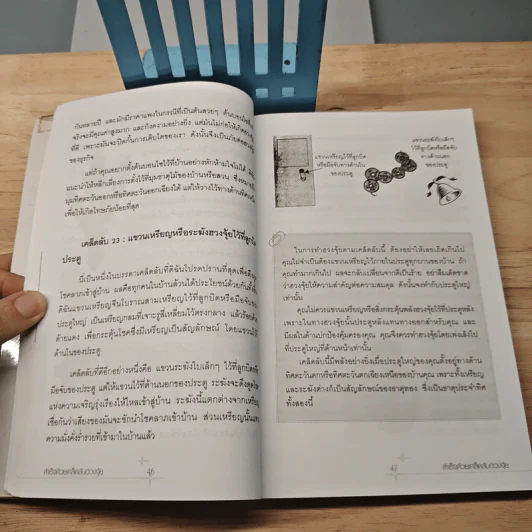 กันหลายปี และมักมีราคาแพงในกรณีที่เป็นต้นสวยๆ ต้นบอนไซที่
จริงจะมีคุณค่าสูงมาก และกิ่งงามอย่างยิ่ง แต่มันไม่ก่อให้เกิด
ที่ดี เพราะมันจะปิดกั้นการเติบโตของเรา ดังนั้นจึงเป็นภัยต่อ
ของธุรกิจ
แต่ถ้าคุณอยากตั้งต้นบอนไซไว้ที่บ้านอย่างหักห้ามใจไม่ได้
แนะนำให้หลีกเลี่ยงการตั้งไว้ที่มุมธาตุไม้ของบ้านหรือสวน ซึ่งหมาย
มุมทิศตะวันออกหรือทิศตะวันออกเฉียงใต้ แต่ให้วางไว้ทางด้านทิศ
เพื่อให้เกิดโทษภัยน้อยที่สุด
เคล็ดลับ 23 : แขวนเหรียญหรือระฆังฮวงจุ้ยไว้ที่ลูกบิด
ประตู
นี่เป็นหนึ่งในบรรดาเคล็ดลับที่ดิฉันโปรดปรานที่สุดเพื่อดึงดูด
โชคลาภเข้าสู่บ้าน ผลคือทุกคนในบ้านล้วนได้ประโยชน์ด้วยกันทั้ง
ดิฉันแขวนเหรียญจีนโบราณสามเหรียญไว้ที่ลูกบิดหรือมือจับของ
ประตูใหญ่ เป็นเหรียญกลมที่เจาะรูสี่เหลี่ยมไว้ตรงกลาง แล้วร้อย
ด้ายแดง เพื่อกระตุ้นโชคซึ่งมีเหรียญเป็นสัญลักษณ์ โดยแขวนไว้
ด้านในของประตู
เคล็ดลับที่ดีอีกอย่างหนึ่งคือ แขวนระฆังใบเล็กๆ ไว้ที่ลูกบิด
มือจับของประตู แต่ให้แขวนไว้ที่ด้านนอกของประตู ระฆังจะดึงดูด
แห่งความเจริญรุ่งเรืองให้ไหลเข้าสู่บ้าน ระฆังนี้แตกต่างจากเหรียญ
เชื่อกันว่าเสียงของมันจะชักนำโชคลาภเข้าบ้าน ส่วนเหรียญนั้น
ความมั่งคั่งร่ำรวยที่เข้ามาในบ้านแล้ว
สำเร็จด้วยเคล็ดลับฮวงจุ้ย 46
แขวนเหรียญไว้ที่ลูกบิด
หรือมือจับทางด้านใน
ของประตู
แขวนระฆังใบเล็กๆ
ไว้ที่ลูกบิดหรือมือจับ
ทางด้านนอก
ของประตู
ในการทำฮวงจุ้ยตามเคล็ดลับนี้ ต้องอย่าให้เลยเถิดเกินไป
คุณไม่จำเป็นต้องแขวนเหรียญไว้ภายในประตูทุกบานของบ้าน ถ้า
คุณทำมากเกินไป ผลจะกลับเปลี่ยนจากดีเป็นร้าย อย่าลืมเด็ดขาด
ว่าฮวงจุ้ยให้ความสำคัญต่อความสมดุล ดังนั้นจงทำกับประตูใหญ่
เท่านั้น
คุณไม่ควรแขวนเหรียญหรือสิ่งกระตุ้นพลังฮวงจุ้ยไว้ที่ประตูหลัง
เพราะในทางฮวงจุ้ยนั้นประตูหลังแทนทางออกสำหรับคุณ และ
มีผลในด้านปกป้องคุ้มครองคุณ คุณจึงควรทำฮวงจุ้ยโดยเพ่งเล็งไป
ที่ประตูใหญ่ที่ด้านหน้าเท่านั้น
เคล็ดลับนี้มีพลังอย่างยิ่งเมื่อประตูใหญ่ของคุณตั้งอยู่ทางด้าน
ทิศตะวันตกหรือทิศตะวันตกเฉียงเหนือของบ้านคุณ เพราะทั้งเหรียญ
และระฆังต่างก็เป็นสัญลักษณ์ของธาตุทอง ซึ่งเป็นธาตุประจำทิศ
ทั้งสองนี้
47 สำเร็จด้วยเคล็ดลับฮวงจุ้ย